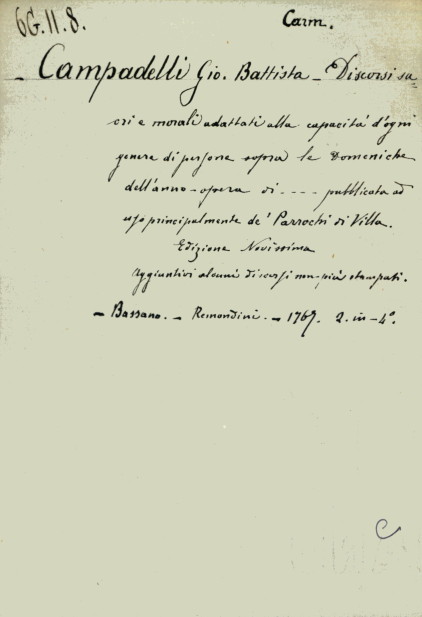 6G.11.8.
Carm.
- Campadelli Gio. Battista - Discorsi sa=
cri e morali adattati alla capacità d'ogni
genere di persone sopra le Domeniche
dell'anno - opera di - - - - pubblicata ad
uso principalmente de' Parrochi di Villa.
Edizione Novissima
Aggiuntivi alcuni discorsi mai più stampati.
- Bassano. - Remondini. - 1769. 2. in - 4°.
C